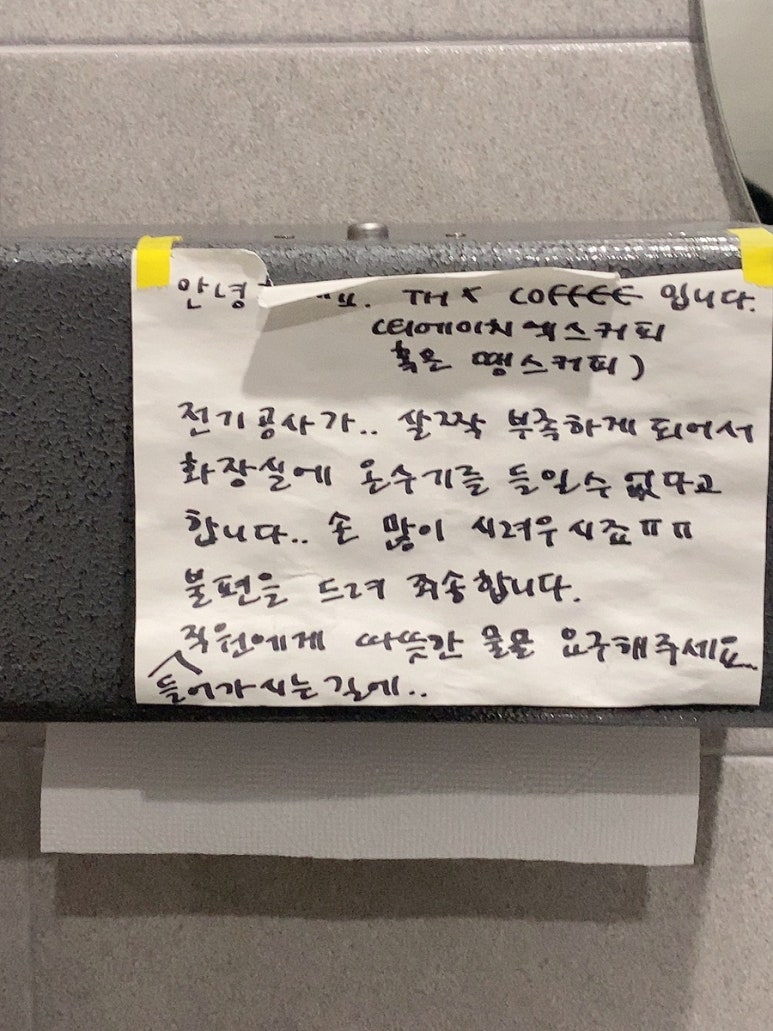 안녕 요. THX COFFEE 입니다.
(티에이치엑스커피
혹은 땡스커피)
전기공사가.. 살짝 부족하게 되어서
화장실에 온수기를 들일수 없다고
합니다.. 손 많이 시려우시죠ㅠㅠ
불편을 드려 죄송합니다.
직원에게 따뜻한 물을 요구해주세요
들어가시는길에..